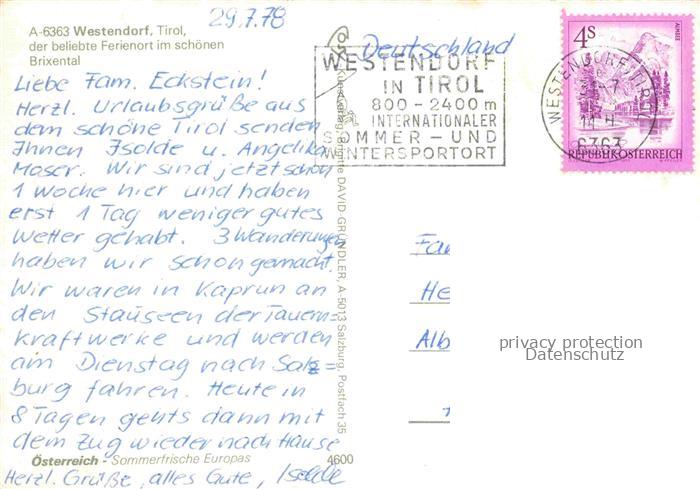 29.7.78
A-6363 Westendorf, Tirol,
der beliebte Ferienort im schönen
Brixental
Liebe Fam. Eckstein!
Herzl. Urlaubsgrüße aus
dem schöne Tirol senden
Ihnen Isolde u. Angelika
Moser. Wir sind jetzt schon
1 Woche hier und haben
erst 1 Tag weniger gutes
Wetter gehabt. 3 Wanderungen
haben wir schon gemacht.
Wir waren in Kaprun an
den Stauseen der Tauern=
kraftwerke und werden
am Dienstag nach Salz=
burg fahren. Heute in
8 Tagen gehts dann mit
dem Zug wieder nach Hause
Österreich - Sommerfrische Europas
4600
Herzl. Grüße, alles Gute, Isolde
Brigitte DAVID-GRÜNDLER, A-5013 Salzburg, Postfach 35
Deutschland
WESTENDORF
IN TIROL
800-2400 m
INTERNATIONALER
SOMMER-UND
WINTERSPORTORT
WESTENDORF, TIROL
6363
4S
ALMSEE
REPUBLIK ÖSTERREICH
Fa
He
Alb
privacy protection
Datenschutz